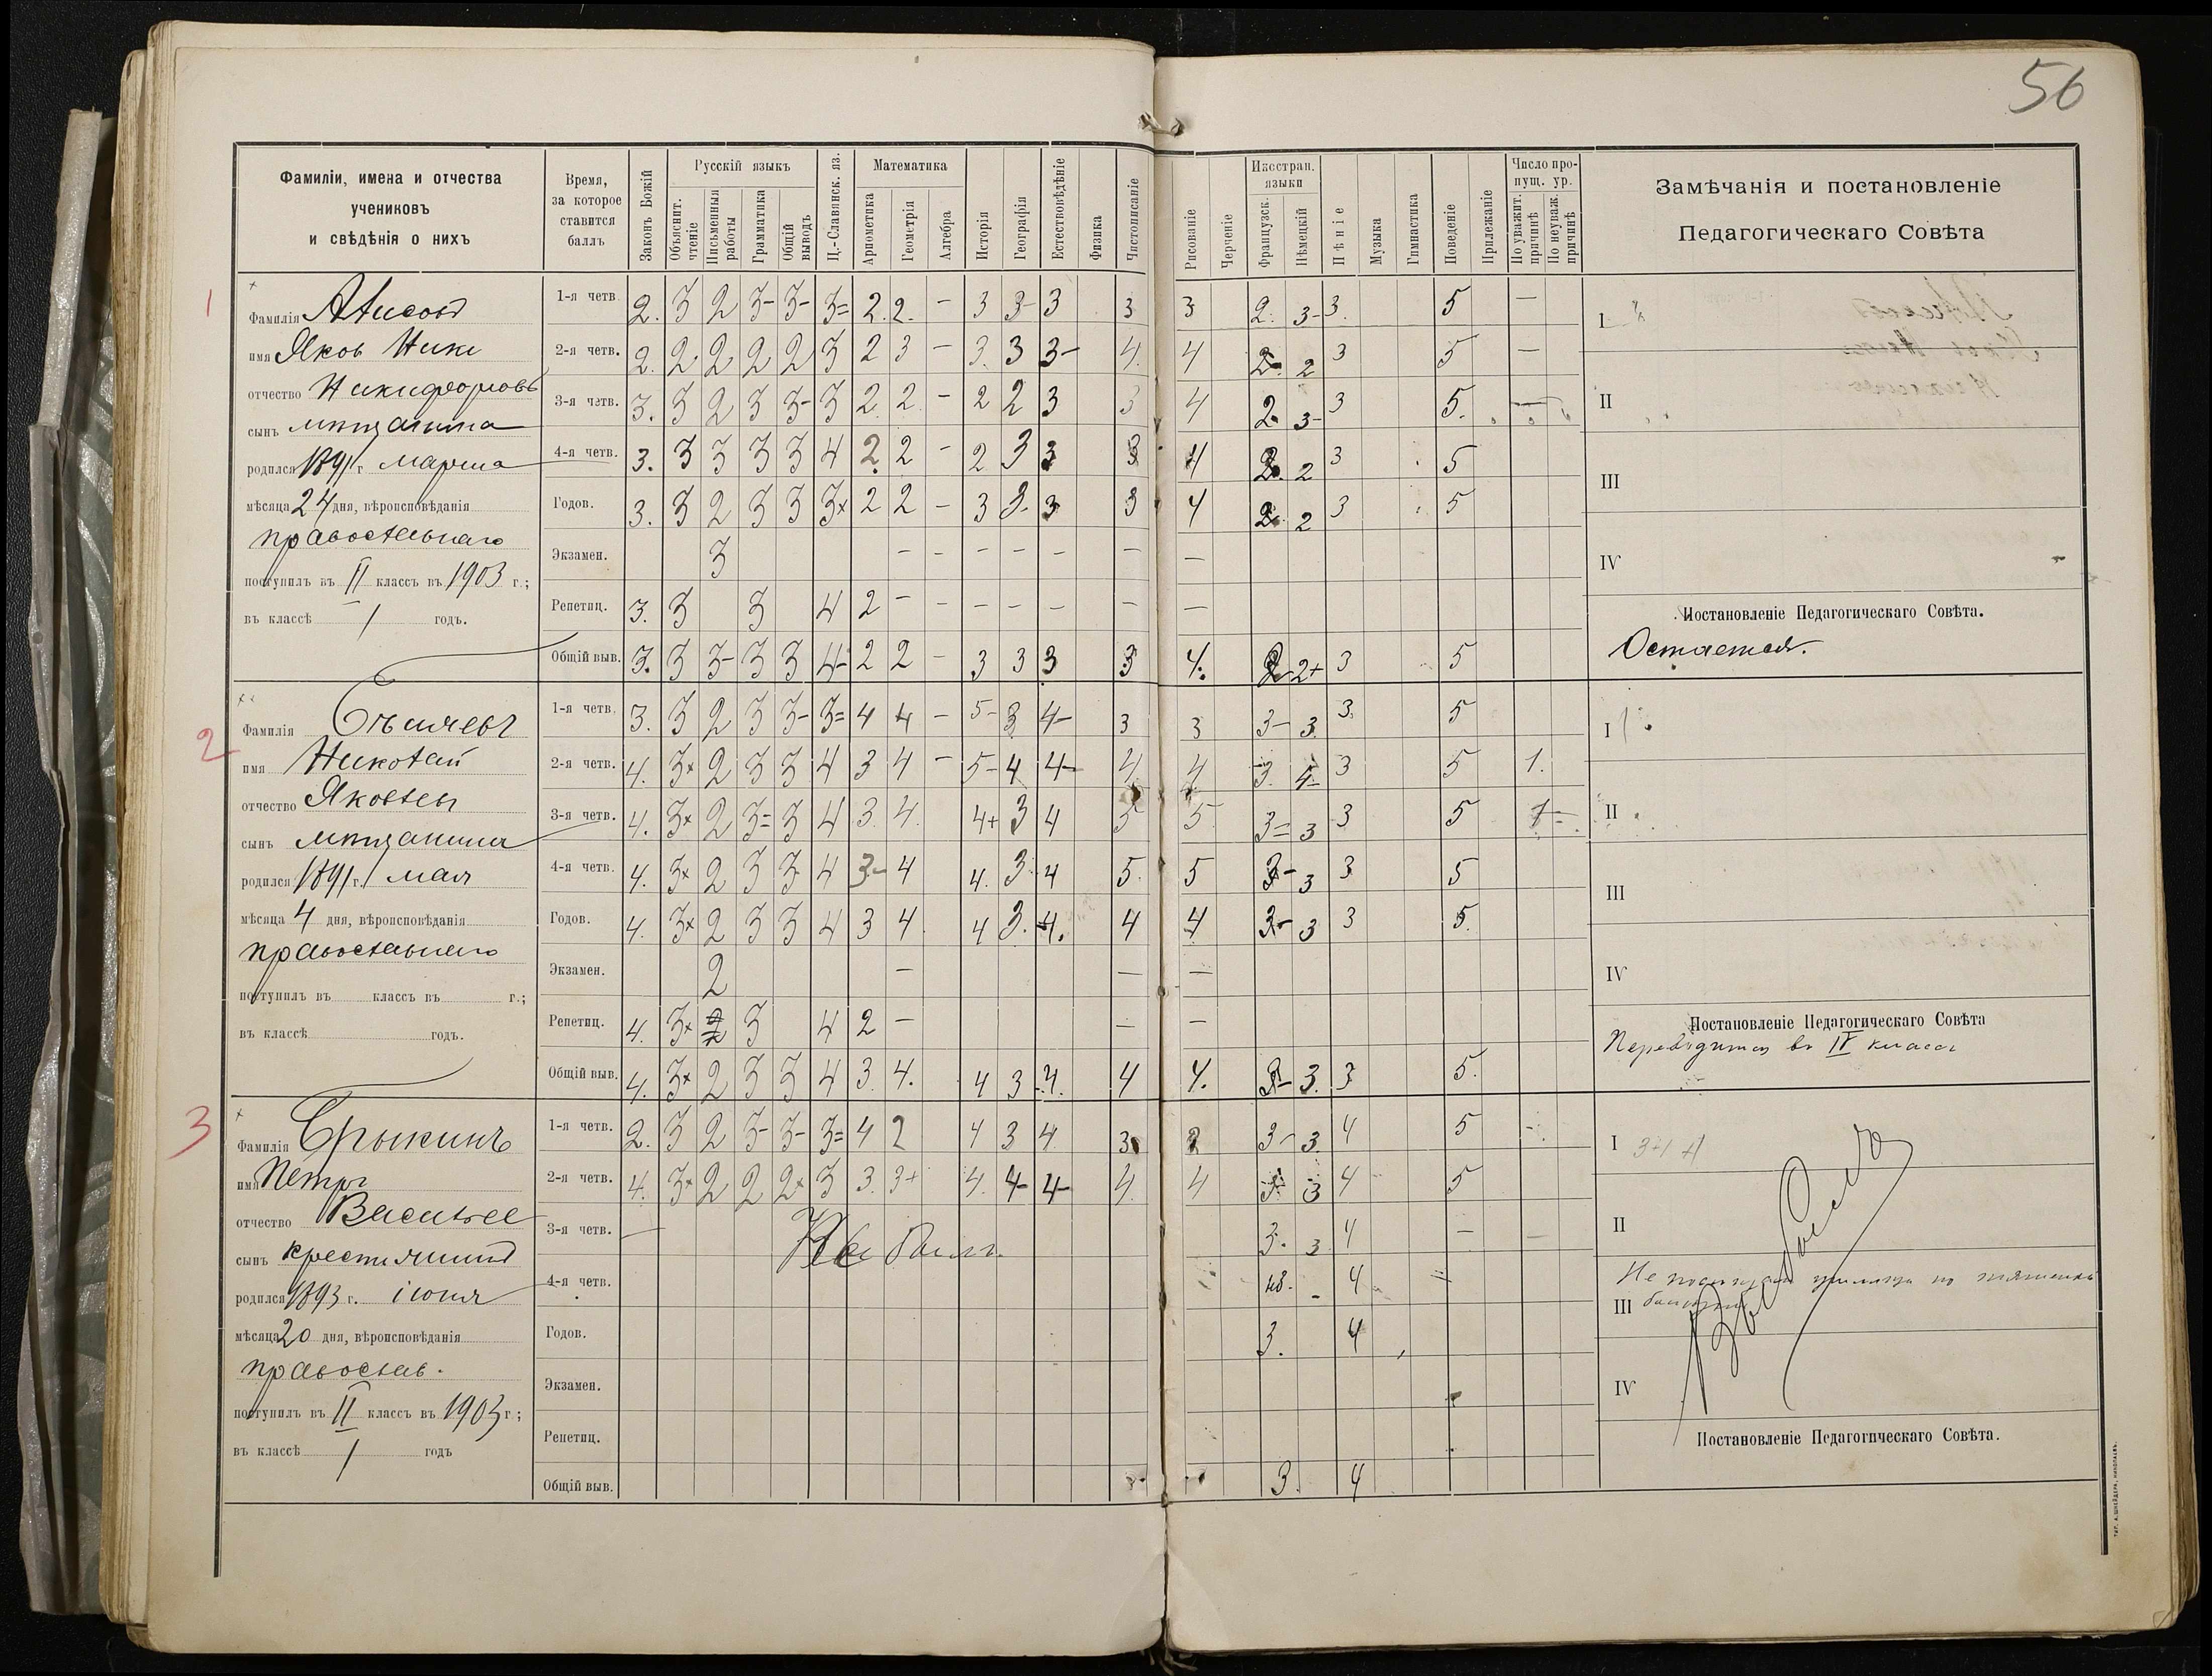 56
Фамиліи, имена и отчества
учениковъ
и свѣдѣнія о нихъ
Время,
за которое
ставится
баллъ
Законъ Божій
Русскій языкъ
Объяснит.
чтеніе
Письменныя
работы
Грамматика
Общій
выводъ
Ц.-Славянск. яз.
Математика
Ариѳметика
Геометрія
Алгебра
Исторія
Географія
Естествовѣдѣніе
Физика
Чистописаніе
Рисованіе
Черченіе
Иностран.
языки
Французск.
Нѣмецкій
Пѣніе
Музыка
Гимнастика
Поведеніе
Прилежаніе
Число про-
пущ. ур.
По уважит.
причинѣ
По неуваж.
причинѣ
Замѣчанія и постановленіе
Педагогическаго Совѣта
1
Фамилія
имя Яковъ
отчество Никифоровъ
сынъ мѣщанина
родился 1891 г. марта
мѣсяца 24 дня, вѣроисповѣданія
православнаго
поступилъ въ II классъ въ 1903 г.;
въ классѣ 1 годъ.
1-я четв. 2. 3 2 3- 3- 3= 2. 2. – 3 3- 3 3 3 2. 3- 3. 5 –
2-я четв. 2. 2 2 2 2 3 2 3 – 3. 3 3- 4. 4 2. 2 3 5 –
3-я четв. 3. 3 2 3 3- 3 2. 2. – 2 2 3 3 4 2. 3- 3 5. –
4-я четв. 3. 3 3 3 3 4 2. 2 – 2 3 3 3 4 2. 2 3 5
Годов. 3. 3 2 3 3 3+ 2 2 – 3 3- 3 3 4 2. 2 3 5
Экзамен. 3 – – – – – – –
Репетиц. 3. 3 3 4 2 – – – – – – –
Общій выв. 3. 3 3- 3 3 4- 2 2 – 3 3 3 3 4. 2 2+ 3 5
I
II
III
IV
Постановленіе Педагогическаго Совѣта.
Остается.
2
Фамилія
имя Николай
отчество Яковлев
сынъ мѣщанина
родился 1891 г. мая
мѣсяца 4 дня, вѣроисповѣданія
православнаго
поступилъ въ классъ въ г.;
въ классѣ годъ.
1-я четв. 3. 3 2 3 3- 3= 4 4 – 5- 3 4- 3 3 3- 3. 3. 5
2-я четв. 4. 3+ 2 3 3 4 3 4 – 5- 4 4- 4. 4 3. 4- 3 5 1.
3-я четв. 4. 3+ 2 3= 3 4 3. 4. 4+ 3 4 5 5 3= 3 3 5
4-я четв. 4. 3+ 2 3 3 4 3- 4 4. 3 4 5. 5 3- 3 3 5
Годов. 4. 3+ 2 3 3 4 3 4 4 3. 4. 4 4 3- 3 3 5.
Экзамен. 2 – – –
Репетиц. 4. 3+ 3 4 2 – – –
Общій выв. 4. 3+ 2 3 3 4 3. 4. 4 3 4. 4 4. 3- 3. 3 5.
I
II
III
IV
Постановленіе Педагогическаго Совѣта
Переводится въ IV классъ
3
Фамилія
имя Петръ
отчество Василье
сынъ
родился 1893 г. іюня
мѣсяца 20 дня, вѣроисповѣданія
православ.
поступилъ въ II классъ въ 1903 г;
въ классѣ 1 годъ
1-я четв. 2. 3 2 3- 3- 3= 4 2 4 3 4 3 3- 3. 4 5 –
2-я четв. 4. 3+ 2 2 2+ 3 3. 3+ 4. 4- 4- 4. 4 3 4 5
3-я четв. – Не былъ 3. 3 4 – –
4-я четв. нб. – 4
Годов. 3. 4
Экзамен.
Репетиц.
Общій выв. 3. 4
I
II
Не посѣщалъ училища по
III болѣзни
IV
Выбылъ
Постановленіе Педагогическаго Совѣта.